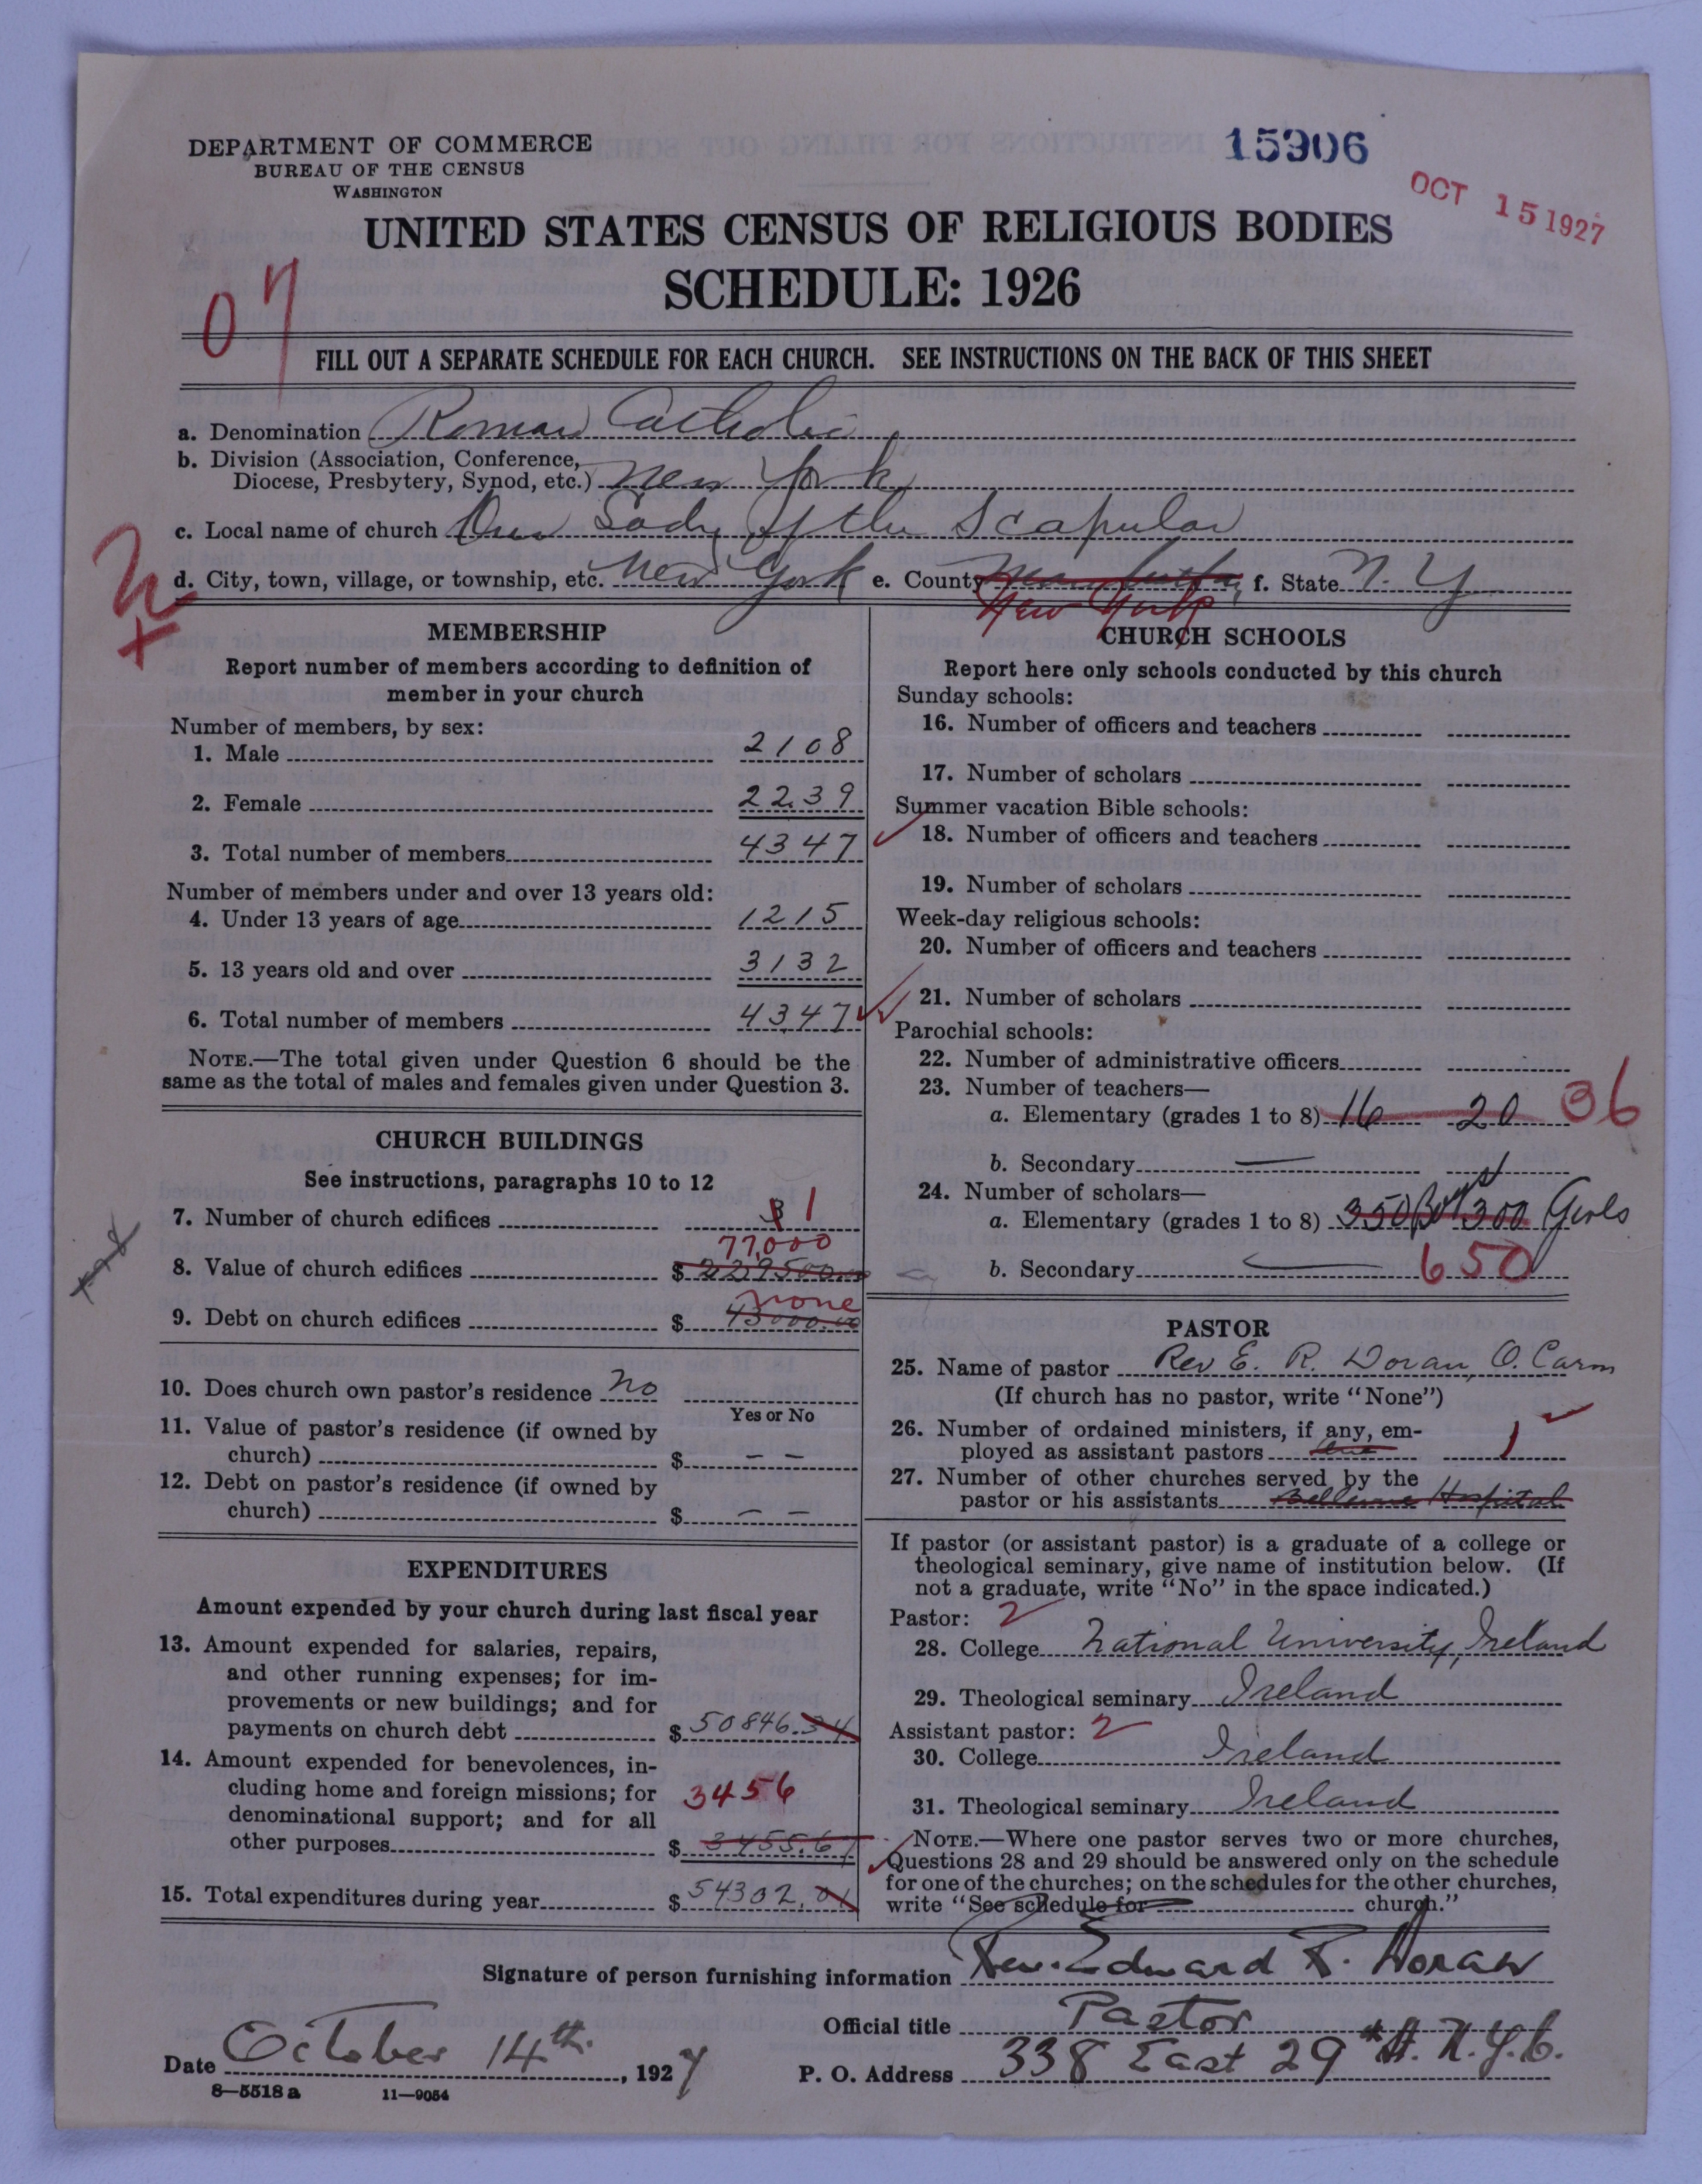 DEPARTMENT OF COMMERCE
BUREAU OF THE CENSUS
WASHINGTON
15906
OCT 15 1927
UNITED STATES CENSUS OF RELIGIOUS BODIES
SCHEDULE: 1926
07
FILL OUT A SEPARATE SCHEDULE FOR EACH CHURCH. SEE INSTRUCTIONS ON THE BACK OF THIS SHEET
a. Denomination Roman Catholic
b. Division (Association, Conference,
Diocese, Presbytery, Synod, etc.) New York
c. Local name of church Our Lady of the Scapular
d. City, town, village, or township, etc. New York e. County New York f. State N. Y
MEMBERSHIP
Report number of members according to definition of
member in your church
Number of members, by sex:
1. Male 2108
2. Female 2239
3. Total number of members 4347
Number of members under and over 13 years old:
4. Under 13 years of age 1215
5. 13 years old and over 3132
6. Total number of members 4347
NOTE.—The total given under Question 6 should be the
same as the total of males and females given under Question 3.
CHURCH BUILDINGS
See instructions, paragraphs 10 to 12
7. Number of church edifices 3 1
77,000
8. Value of church edifices $ 229500.00
none
9. Debt on church edifices $ 43000.00
10. Does church own pastor's residence No
Yes or No
11. Value of pastor's residence (if owned by
church) $ – –
12. Debt on pastor's residence (if owned by
church) $ – –
EXPENDITURES
Amount expended by your church during last fiscal year
13. Amount expended for salaries, repairs,
and other running expenses; for im-
provements or new buildings; and for
payments on church debt $ 50846.34
14. Amount expended for benevolences, in-
cluding home and foreign missions; for 3456
denominational support; and for all
other purposes $ 3455.67
15. Total expenditures during year $ 54302.01
CHURCH SCHOOLS
Report here only schools conducted by this church
Sunday schools:
16. Number of officers and teachers
17. Number of scholars
Summer vacation Bible schools:
18. Number of officers and teachers
19. Number of scholars
Week-day religious schools:
20. Number of officers and teachers
21. Number of scholars
Parochial schools:
22. Number of administrative officers
23. Number of teachers—
a. Elementary (grades 1 to 8) 16 20 36
b. Secondary —
24. Number of scholars—
a. Elementary (grades 1 to 8) 350 Boys 300 Girls
b. Secondary — 650
PASTOR
25. Name of pastor Rev E. R. Doran, O. Carm
(If church has no pastor, write "None")
26. Number of ordained ministers, if any, em-
ployed as assistant pastors one 1
27. Number of other churches served by the
pastor or his assistants Bellevue Hospital
If pastor (or assistant pastor) is a graduate of a college or
theological seminary, give name of institution below. (If
not a graduate, write "No" in the space indicated.)
Pastor: 2
28. College National University, Ireland
29. Theological seminary Ireland
Assistant pastor: 2
30. College Ireland
31. Theological seminary Ireland
NOTE.—Where one pastor serves two or more churches,
Questions 28 and 29 should be answered only on the schedule
for one of the churches; on the schedules for the other churches,
write "See schedule for church."
Signature of person furnishing information Rev. Edward R. Doran
Official title Pastor
Date October 14th, 1927 P. O. Address 338 East 29th St. N.Y.C.
8—5518 a 11—9054